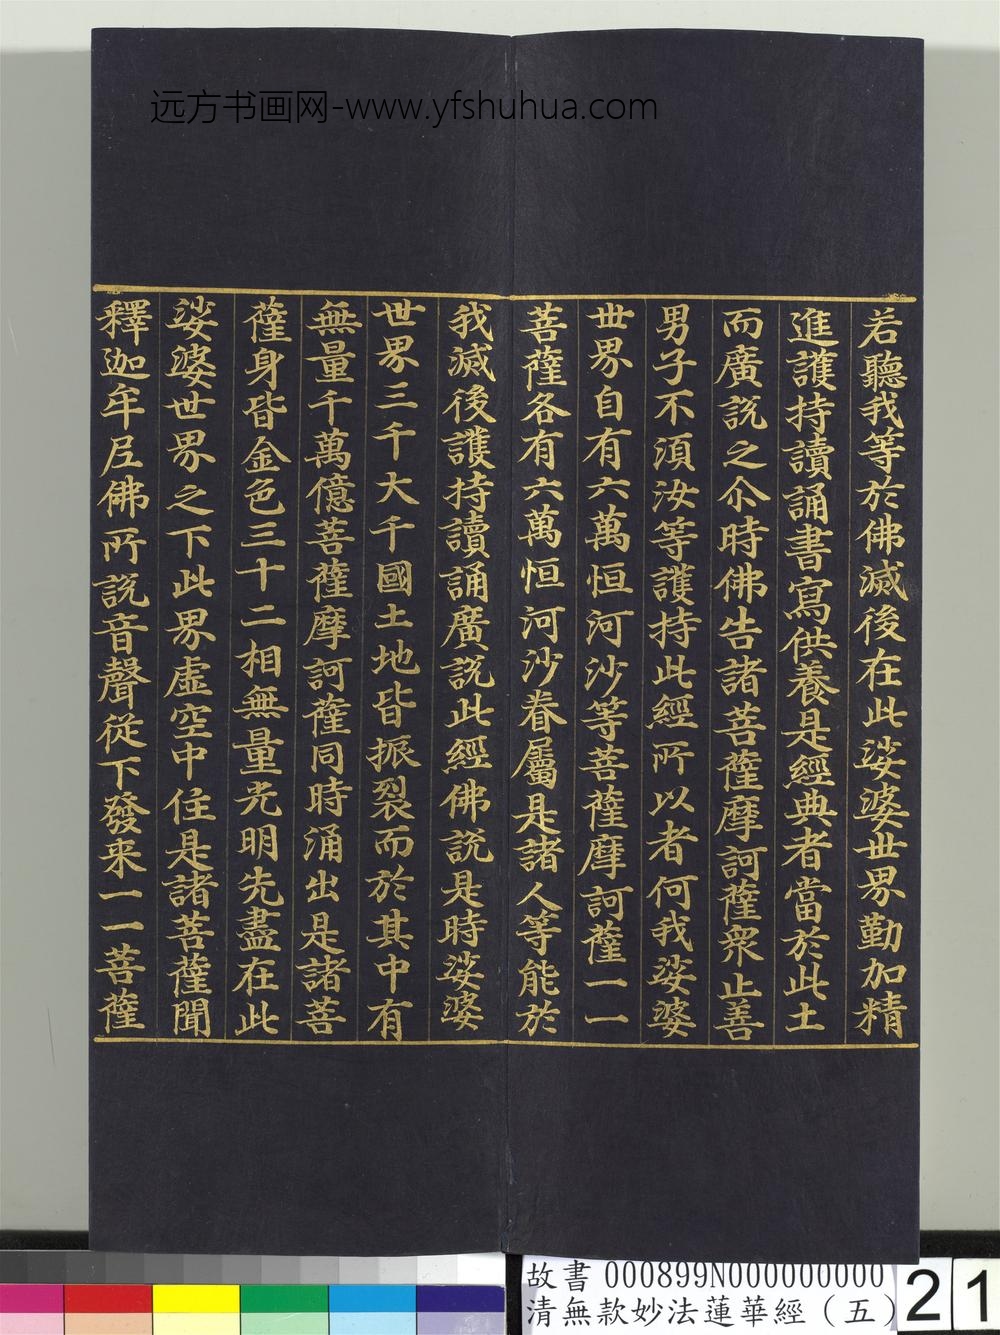 远方书画网-www.yfshuhua.com
若聽我等於佛滅後在此娑婆世界勤加精
進護持讀誦書寫供養是經典者當於此土
而廣說之尒時佛告諸菩薩摩訶薩眾止善
男子不湏汝等護持此經所以者何我娑婆
世界自有六萬恒河沙等菩薩摩訶薩一一
菩薩各有六萬恒河沙眷屬是諸人等能於
我滅後護持讀誦廣說此經佛說是時娑婆
世界三千大千國土地皆振裂而於其中有
無量千萬億菩薩摩訶薩同時涌出是諸菩
薩身皆金色三十二相無量光明先盡在此
娑婆世界之下此界虛空中住是諸菩薩聞
釋迦牟尼佛所說音聲從下發来一一菩薩
故書 000899N000000000
清無款妙法蓮華經（五）
21